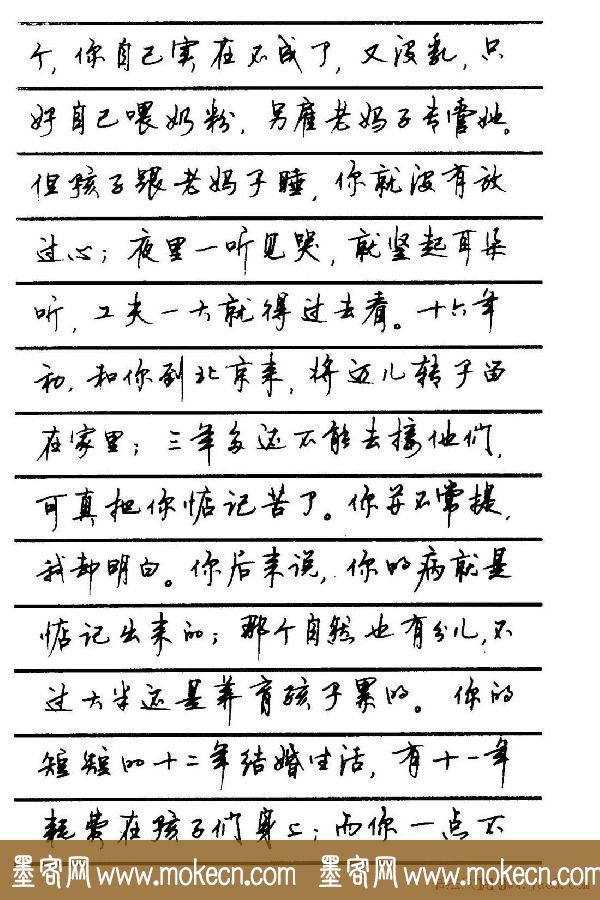 个，你自己实在不成了，又没乳，只
好自己喂奶粉，另雇老妈子专管她。
但孩子跟老妈子睡，你就没有放
过心；夜里一听见哭，就竖起耳朵
听，工夫一大就得过去看。十六年
初，和你到北京来，将迈儿转子留
在家里；三年多还不能去接他们，
可真把你惦记苦了。你并不常提，
我却明白。你后来说，你的病就是
惦记出来的；那个自然也有分儿，不
过大半还是养育孩子累的。你的
短短的十二年结婚生活，有十一年
耗费在孩子们身上；而你一点不
墨客网 www.mokecn.com 墨客网 www.mokecn.com